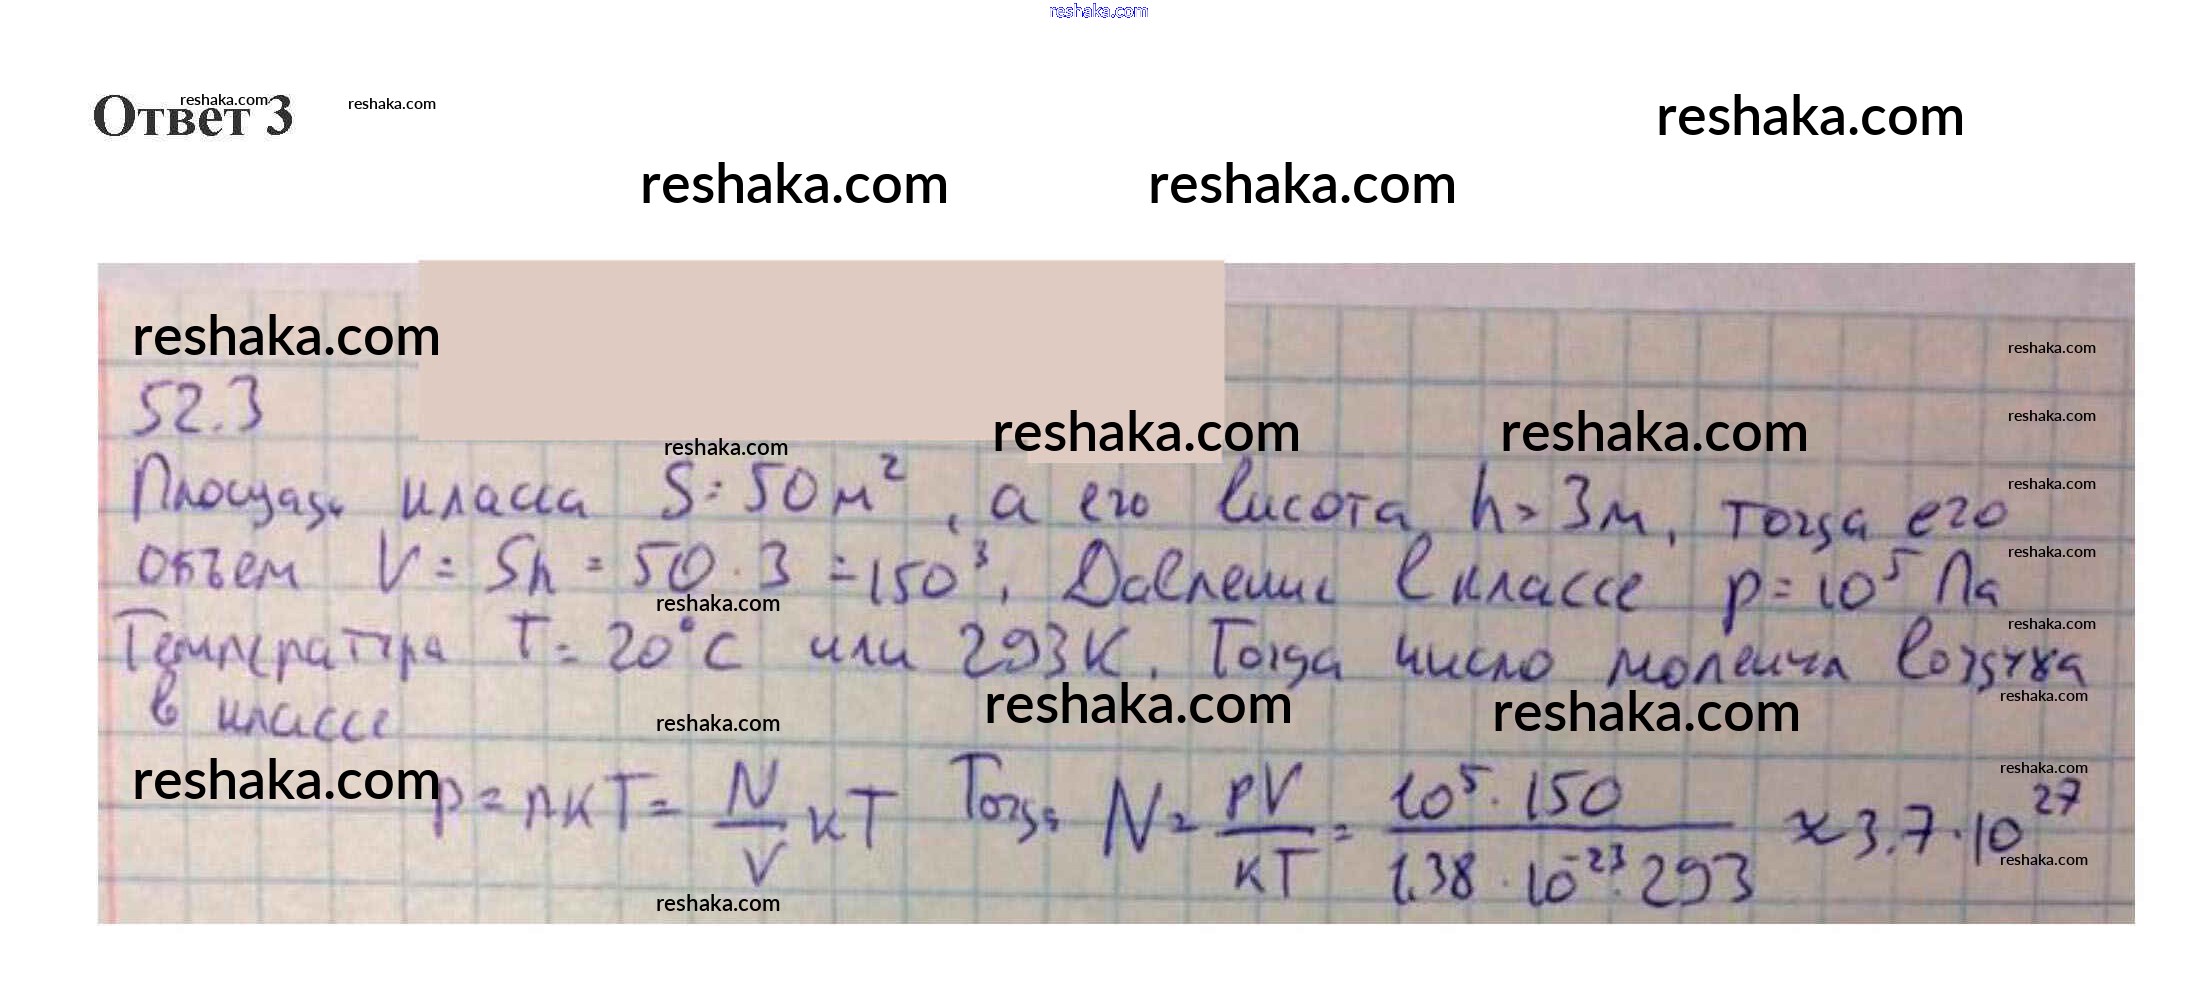 reshaka.com
Ответ 3
reshaka.com
reshaka.com
reshaka.com
reshaka.com
reshaka.com
reshaka.com
reshaka.com
52.3
reshaka.com
reshaka.com
reshaka.com
reshaka.com
Площадь класса S = 50 м², а его висота h = 3м, тогда его
reshaka.com
объем V = Sh = 50 · 3 = 150³. Давление в классе p = 10⁵ Па
reshaka.com
reshaka.com
Температура T = 20°C или 293К. Тогда число молекул воздуха
reshaka.com
в классе
reshaka.com
reshaka.com
reshaka.com
reshaka.com
reshaka.com
reshaka.com
p = nкT = N/V кT Тогда N = pV/кT = 10⁵ · 150 / 1,38 · 10⁻²³ · 293 ≈ 3,7 · 10²⁷
reshaka.com
reshaka.com